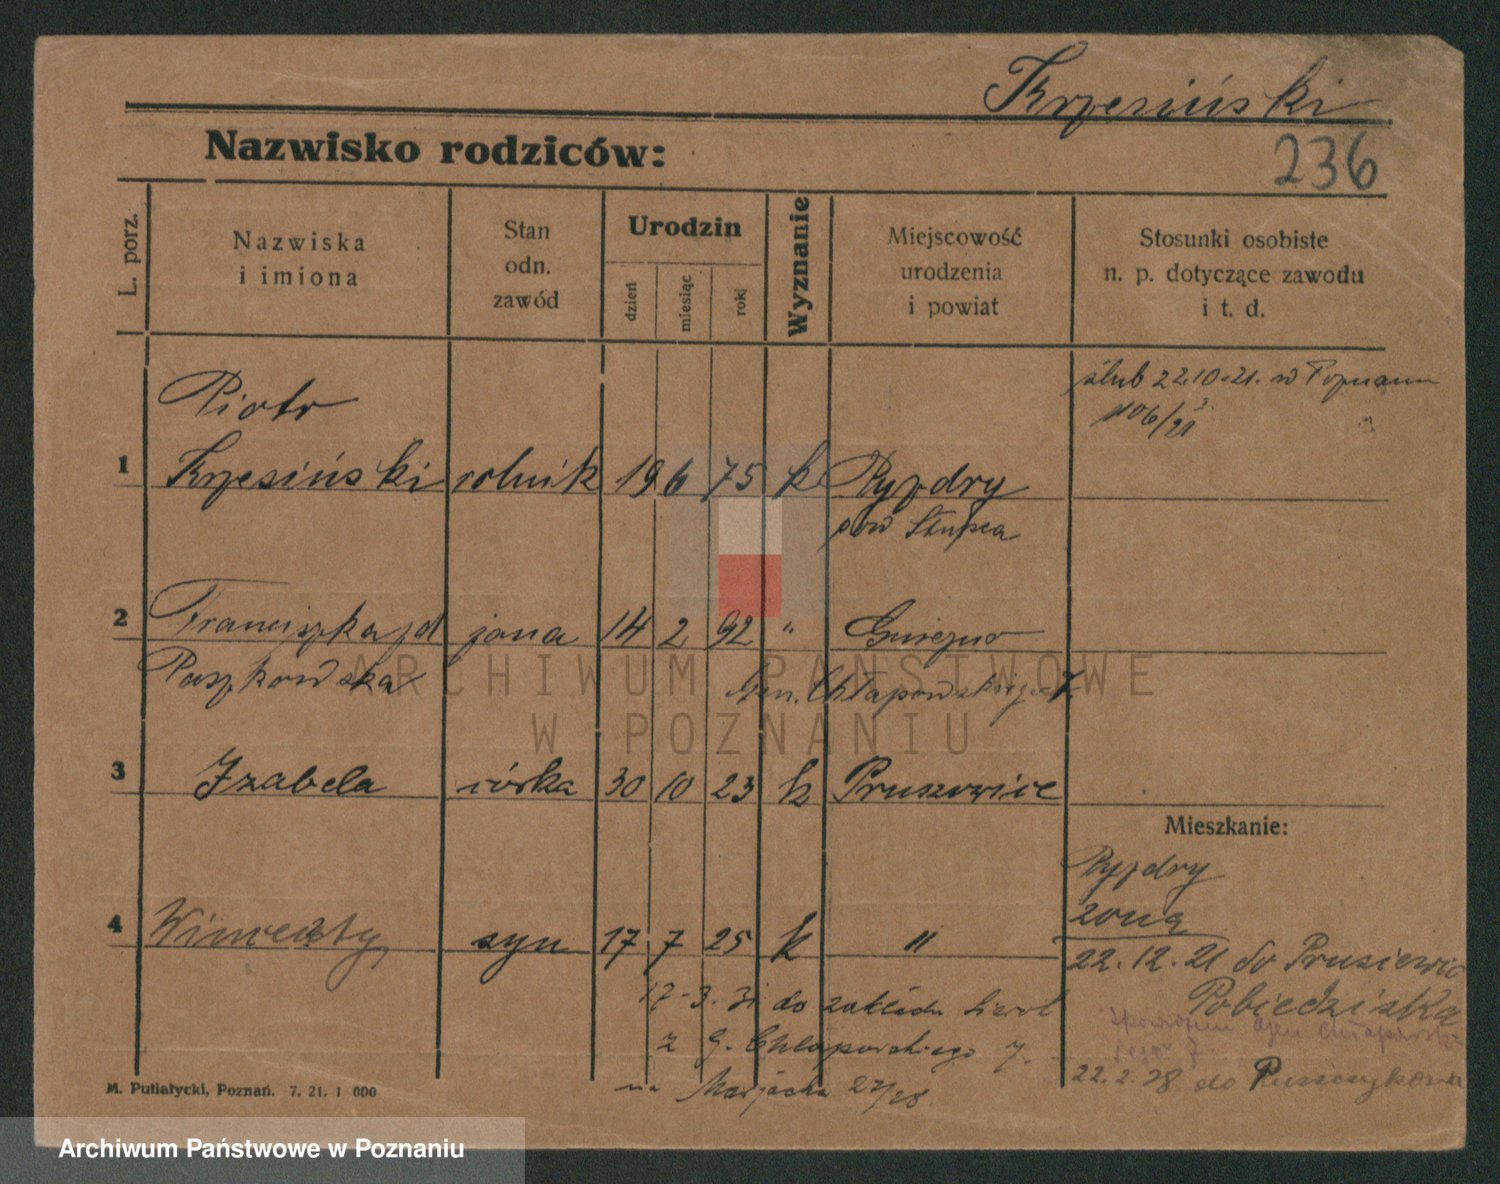 Krzesiński
Nazwisko rodziców:
236
L. porz.
Nazwiska
i imiona
Stan
odn.
zawód
Urodzin
dzień
miesiąc
rok
Wyznanie
Miejscowość
urodzenia
i powiat
Stosunki osobiste
n. p. dotyczące zawodu
i t. d.
ślub 22.10.21. w Poznaniu
Piotr
1 Krzesiński rolnik 19 6 75 k Pyzdry
pow Słupca
2 Franciszka zd jona 14 2 92 " Gniezno
Paszkowska
Gen. Chłapowskiego 7.
3 Izabela córka 30 10 23 k Pruszewice
Mieszkanie:
Pyzdry
żoną
4 Wincenty syn 17 7 25 k "
22.12.21 do
Pobiedziska
17-3-31 do zakładu sierot
z G. Chłapowskiego 7.
22.2.28 do
na 27/28.
M. Putiatycki, Poznań. 7. 21. 1 000
ARCHIWUM PAŃSTWOWE
W POZNANIU
Archiwum Państwowe w Poznaniu